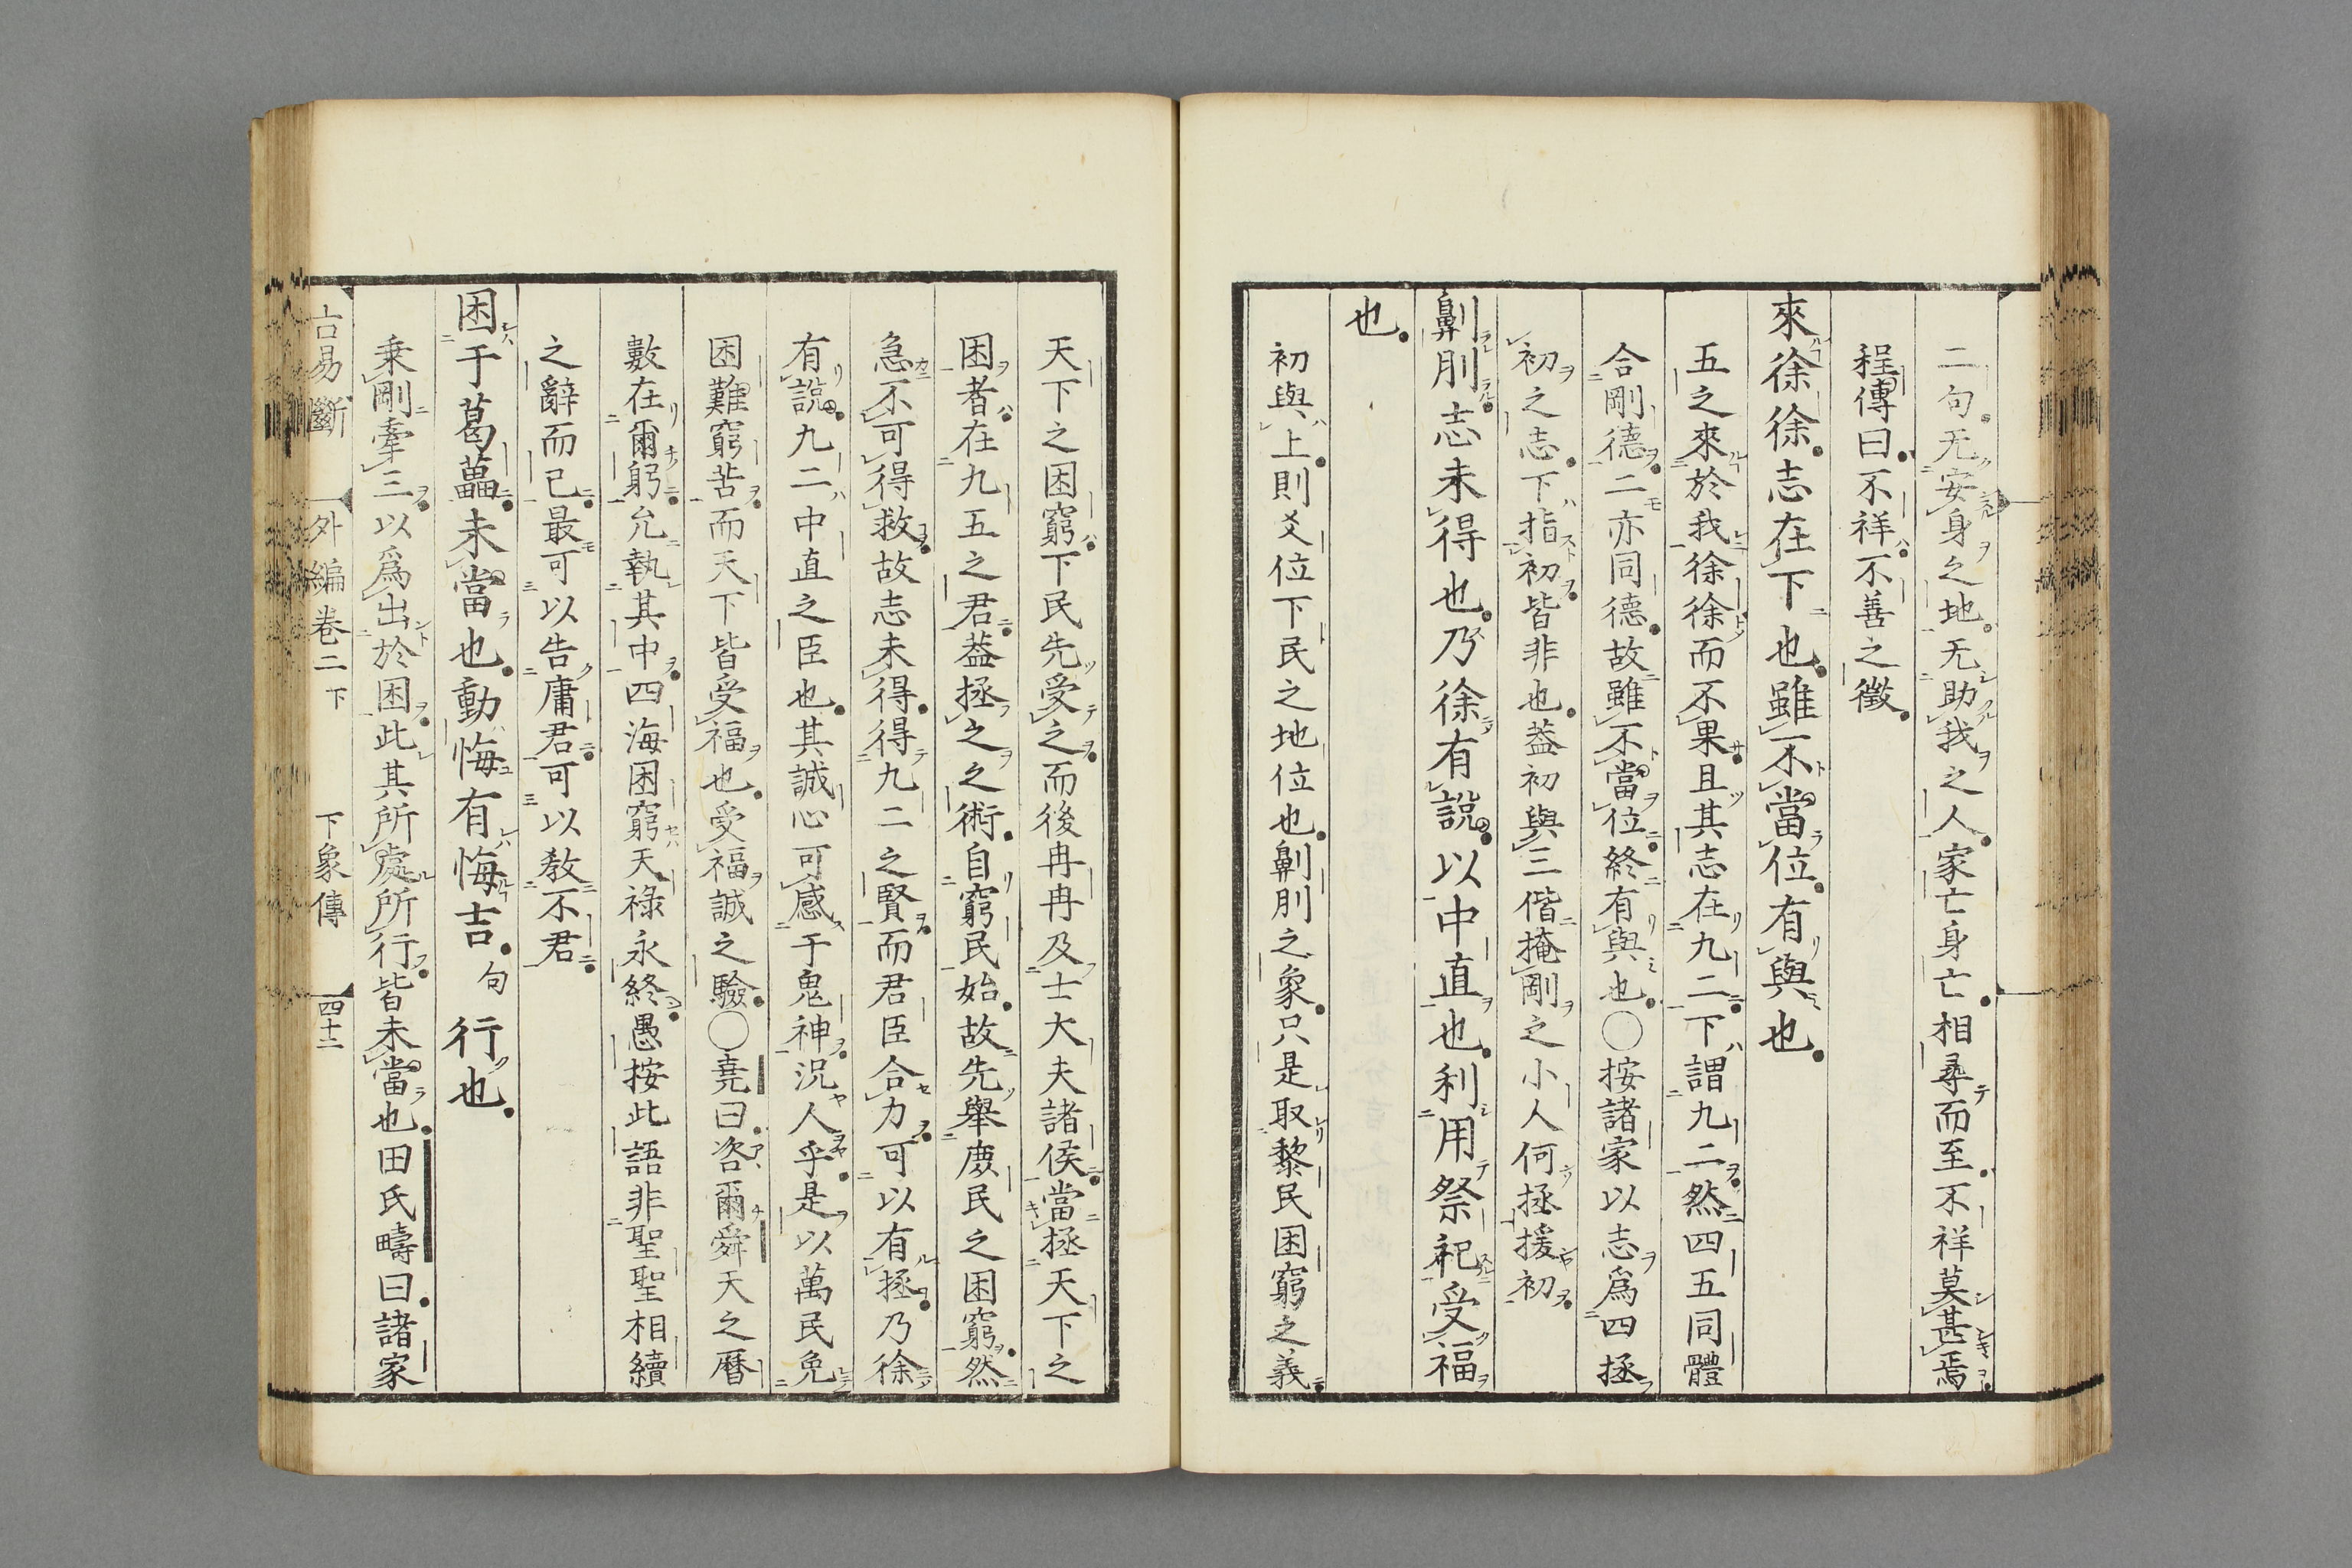 二句无安身之地无助我之人家亡身亡相尋而至不祥莫甚焉
程傳曰不祥不善之徵
來徐徐志在下也雖不當位有與也
五之來於我徐徐而不果且其志在九二下謂九二然四五同體
合剛德二亦同德故雖不當位終有與也○按諸家以志爲四拯
初之志下指初皆非也葢初與三偕掩剛之小人何拯援初
劓刖志未得也乃徐有說以中直也利用祭祀受福
也
初與上則爻位下民之地位也劓刖之象只是取黎民困窮之義
天下之困窮下民先受之而後冉冉及士大夫諸侯當拯天下之
困者在九五之君葢拯之之術自窮民始故先舉庻民之困窮然
急不可得救故志未得得九二之賢而君臣合力可以有拯乃徐
有說九二中直之臣也其誠心可感于鬼神況人乎是以萬民免
困難窮苦而天下皆受福也受福誠之驗○堯曰咨爾舜天之曆
數在爾躬允執其中四海困窮天祿永終愚按此語非聖聖相續
之辭而已最可以告庸君可以教不君
困于葛藟未當也動悔有悔吉句行也
乗剛牽三以爲出於困此其所處所行皆未當也田氏疇曰諸家
古易斷 外編卷二下 下象傳 四十二